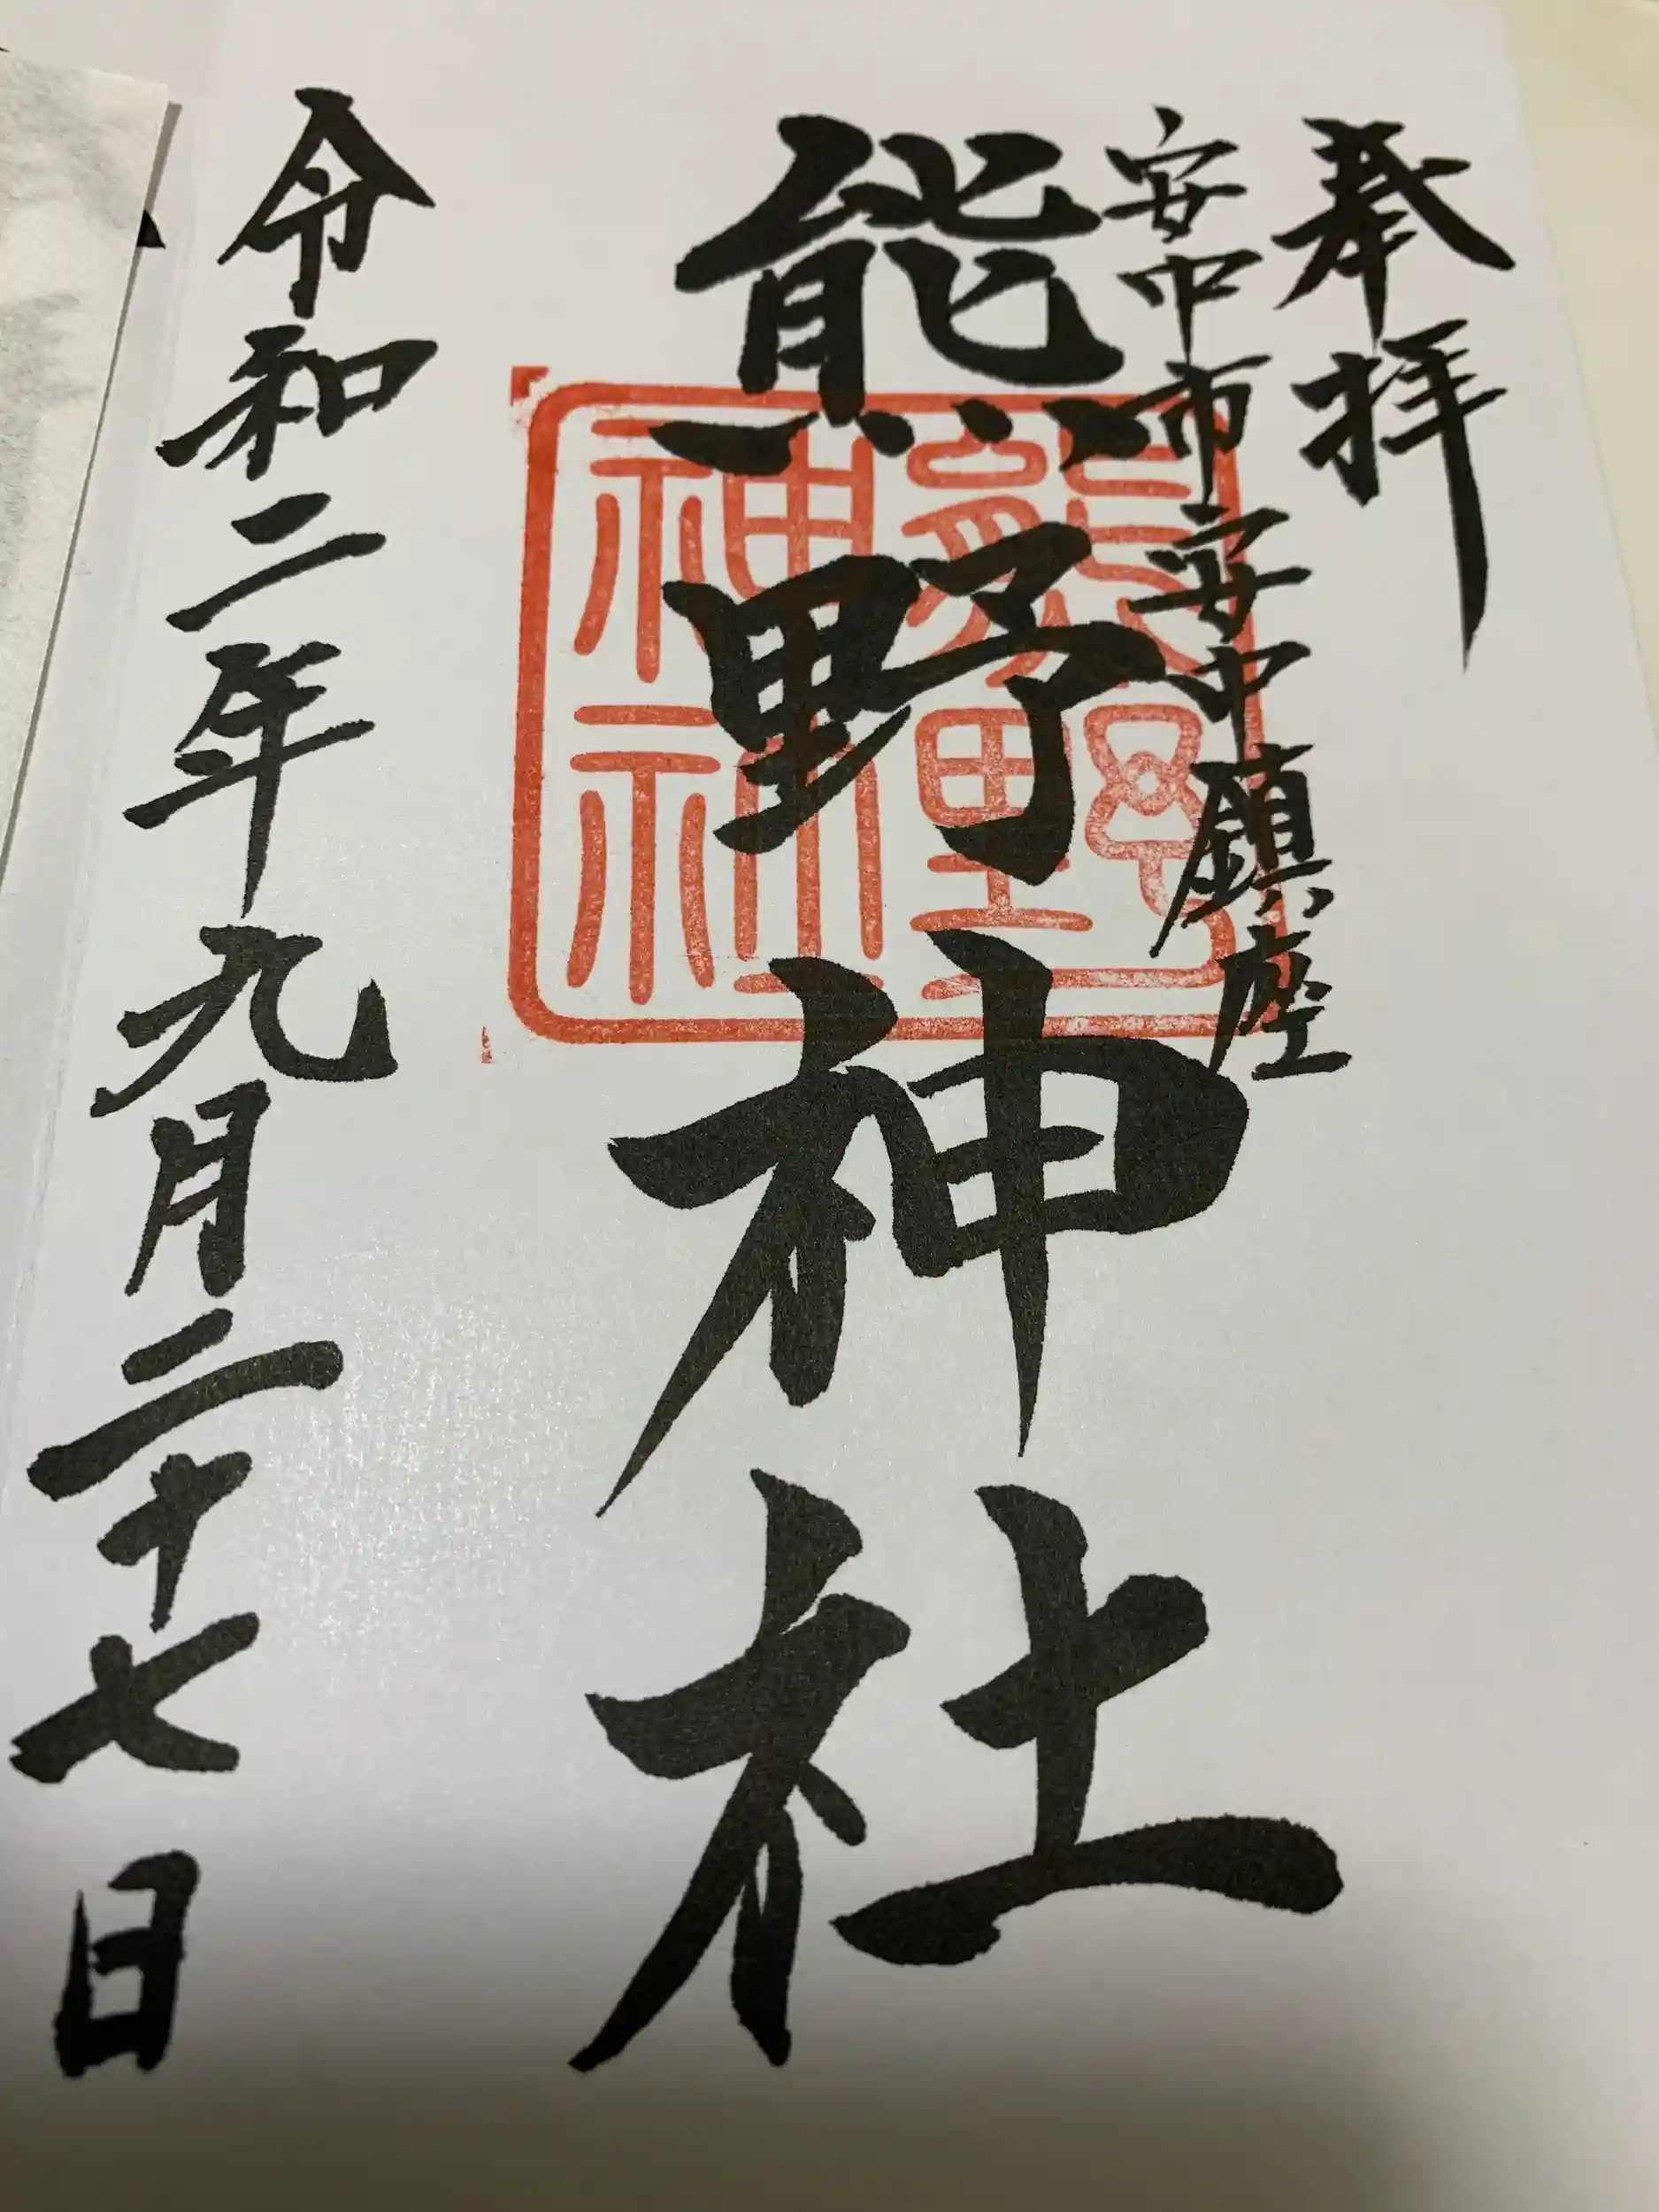 奉拝
安中市安中鎮座
熊野神社
熊野
神社
令和二年九月二十七日